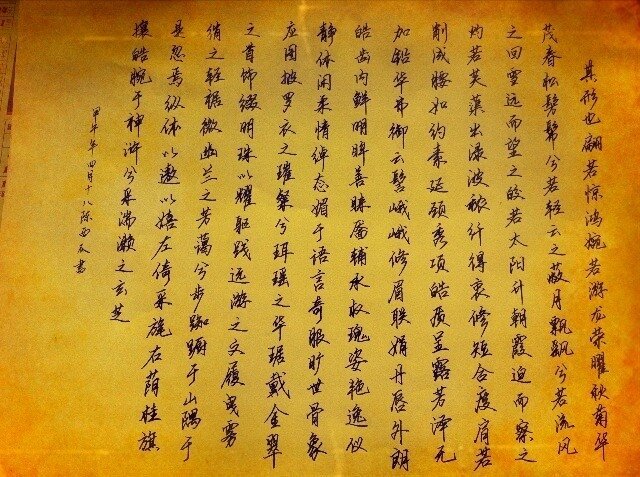 其形也翩若惊鸿婉若游龙荣曜秋菊华
茂春松髣髴兮若轻云之蔽月飘飘兮若流风
之回雪远而望之皎若太阳升朝霞迫而察之
灼若芙蕖出渌波秾纤得衷修短合度肩若
削成腰如约素延颈秀项皓质呈露芳泽无
加铅华弗御云髻峨峨修眉联娟丹唇外朗
皓齿内鲜明眸善睐靥辅承权瑰姿艳逸仪
静体闲柔情绰态媚于语言奇服旷世骨象
应图披罗衣之璀粲兮珥瑶之华琚戴金翠
之首饰缀明珠以耀躯践远游之文履曳雾
绡之轻裾微幽兰之芳蔼兮步踟蹰于山隅于
是忽焉纵体以遨以嬉左倚采旄右荫桂旗
攘皓腕于神浒兮采湍濑之玄芝
甲午年四月十八陈西书